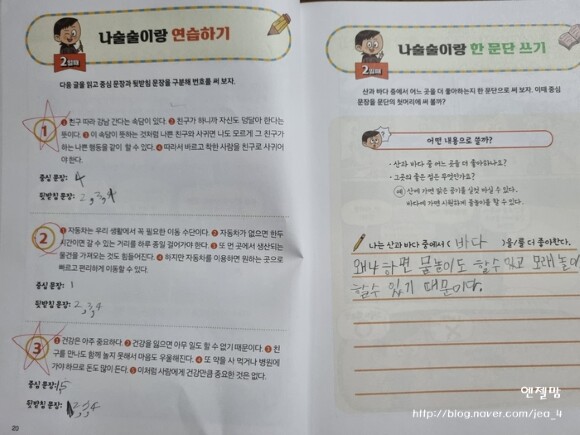 나술술이랑 연습하기
2일째
다음 글을 읽고 중심 문장과 뒷받침 문장을 구분해 번호를 써 보자.
1
❶ 친구 따라 강남 간다는 속담이 있다. ❷ 친구가 하니까 자신도 덩달아 한다는
뜻이다. ❸ 이 속담이 뜻하는 것처럼 나쁜 친구와 사귀면 나도 모르게 그 친구가
하는 나쁜 행동을 같이 할 수 있다. ❹ 따라서 바르고 착한 사람을 친구로 사귀어
야 한다.
중심 문장: 4
뒷받침 문장: 2, 3, 1
2
❶ 자동차는 우리 생활에서 꼭 필요한 이동 수단이다. ❷ 자동차가 없으면 한두
시간이면 갈 수 있는 거리를 하루 종일 걸어가야 한다. ❸ 또 먼 곳에서 생산되는
물건을 가져오는 것도 힘들어진다. ❹ 하지만 자동차를 이용하면 원하는 곳으로
빠르고 편리하게 이동할 수 있다.
중심 문장: 1
뒷받침 문장: 2, 3, 4
3
❶ 건강은 아주 중요하다. ❷ 건강을 잃으면 아무 일도 할 수 없기 때문이다. ❸ 친
구를 만나도 함께 놀지 못해서 마음도 우울해진다. ❹ 또 약을 사 먹거나 병원에
가야 하므로 돈도 많이 든다. ❺ 이처럼 사람에게 건강만큼 중요한 것은 없다.
중심 문장: 1, 5
뒷받침 문장: 2, 3, 4
20
나술술이랑 한 문단 쓰기
2일째
산과 바다 중에서 어느 곳을 더 좋아하는지 한 문단으로 써 보자. 이때 중심
문장을 문단의 첫머리에 써 볼까?
어떤 내용으로 쓸까?
• 산과 바다 중 어느 곳을 더 좋아하나요?
• 그곳의 좋은 점은 무엇인가요?
예 산에 가면 맑은 공기를 실컷 마실 수 있다.
바다에 가면 시원하게 물놀이를 할 수 있다.
나는 산과 바다 중에서 ( 바다 )을/를 더 좋아한다.
왜냐하면 물놀이도 할 수 있고 모래놀이
할수 있기 때문이다.
엔젤맘
http://blog.naver.com/jea_4